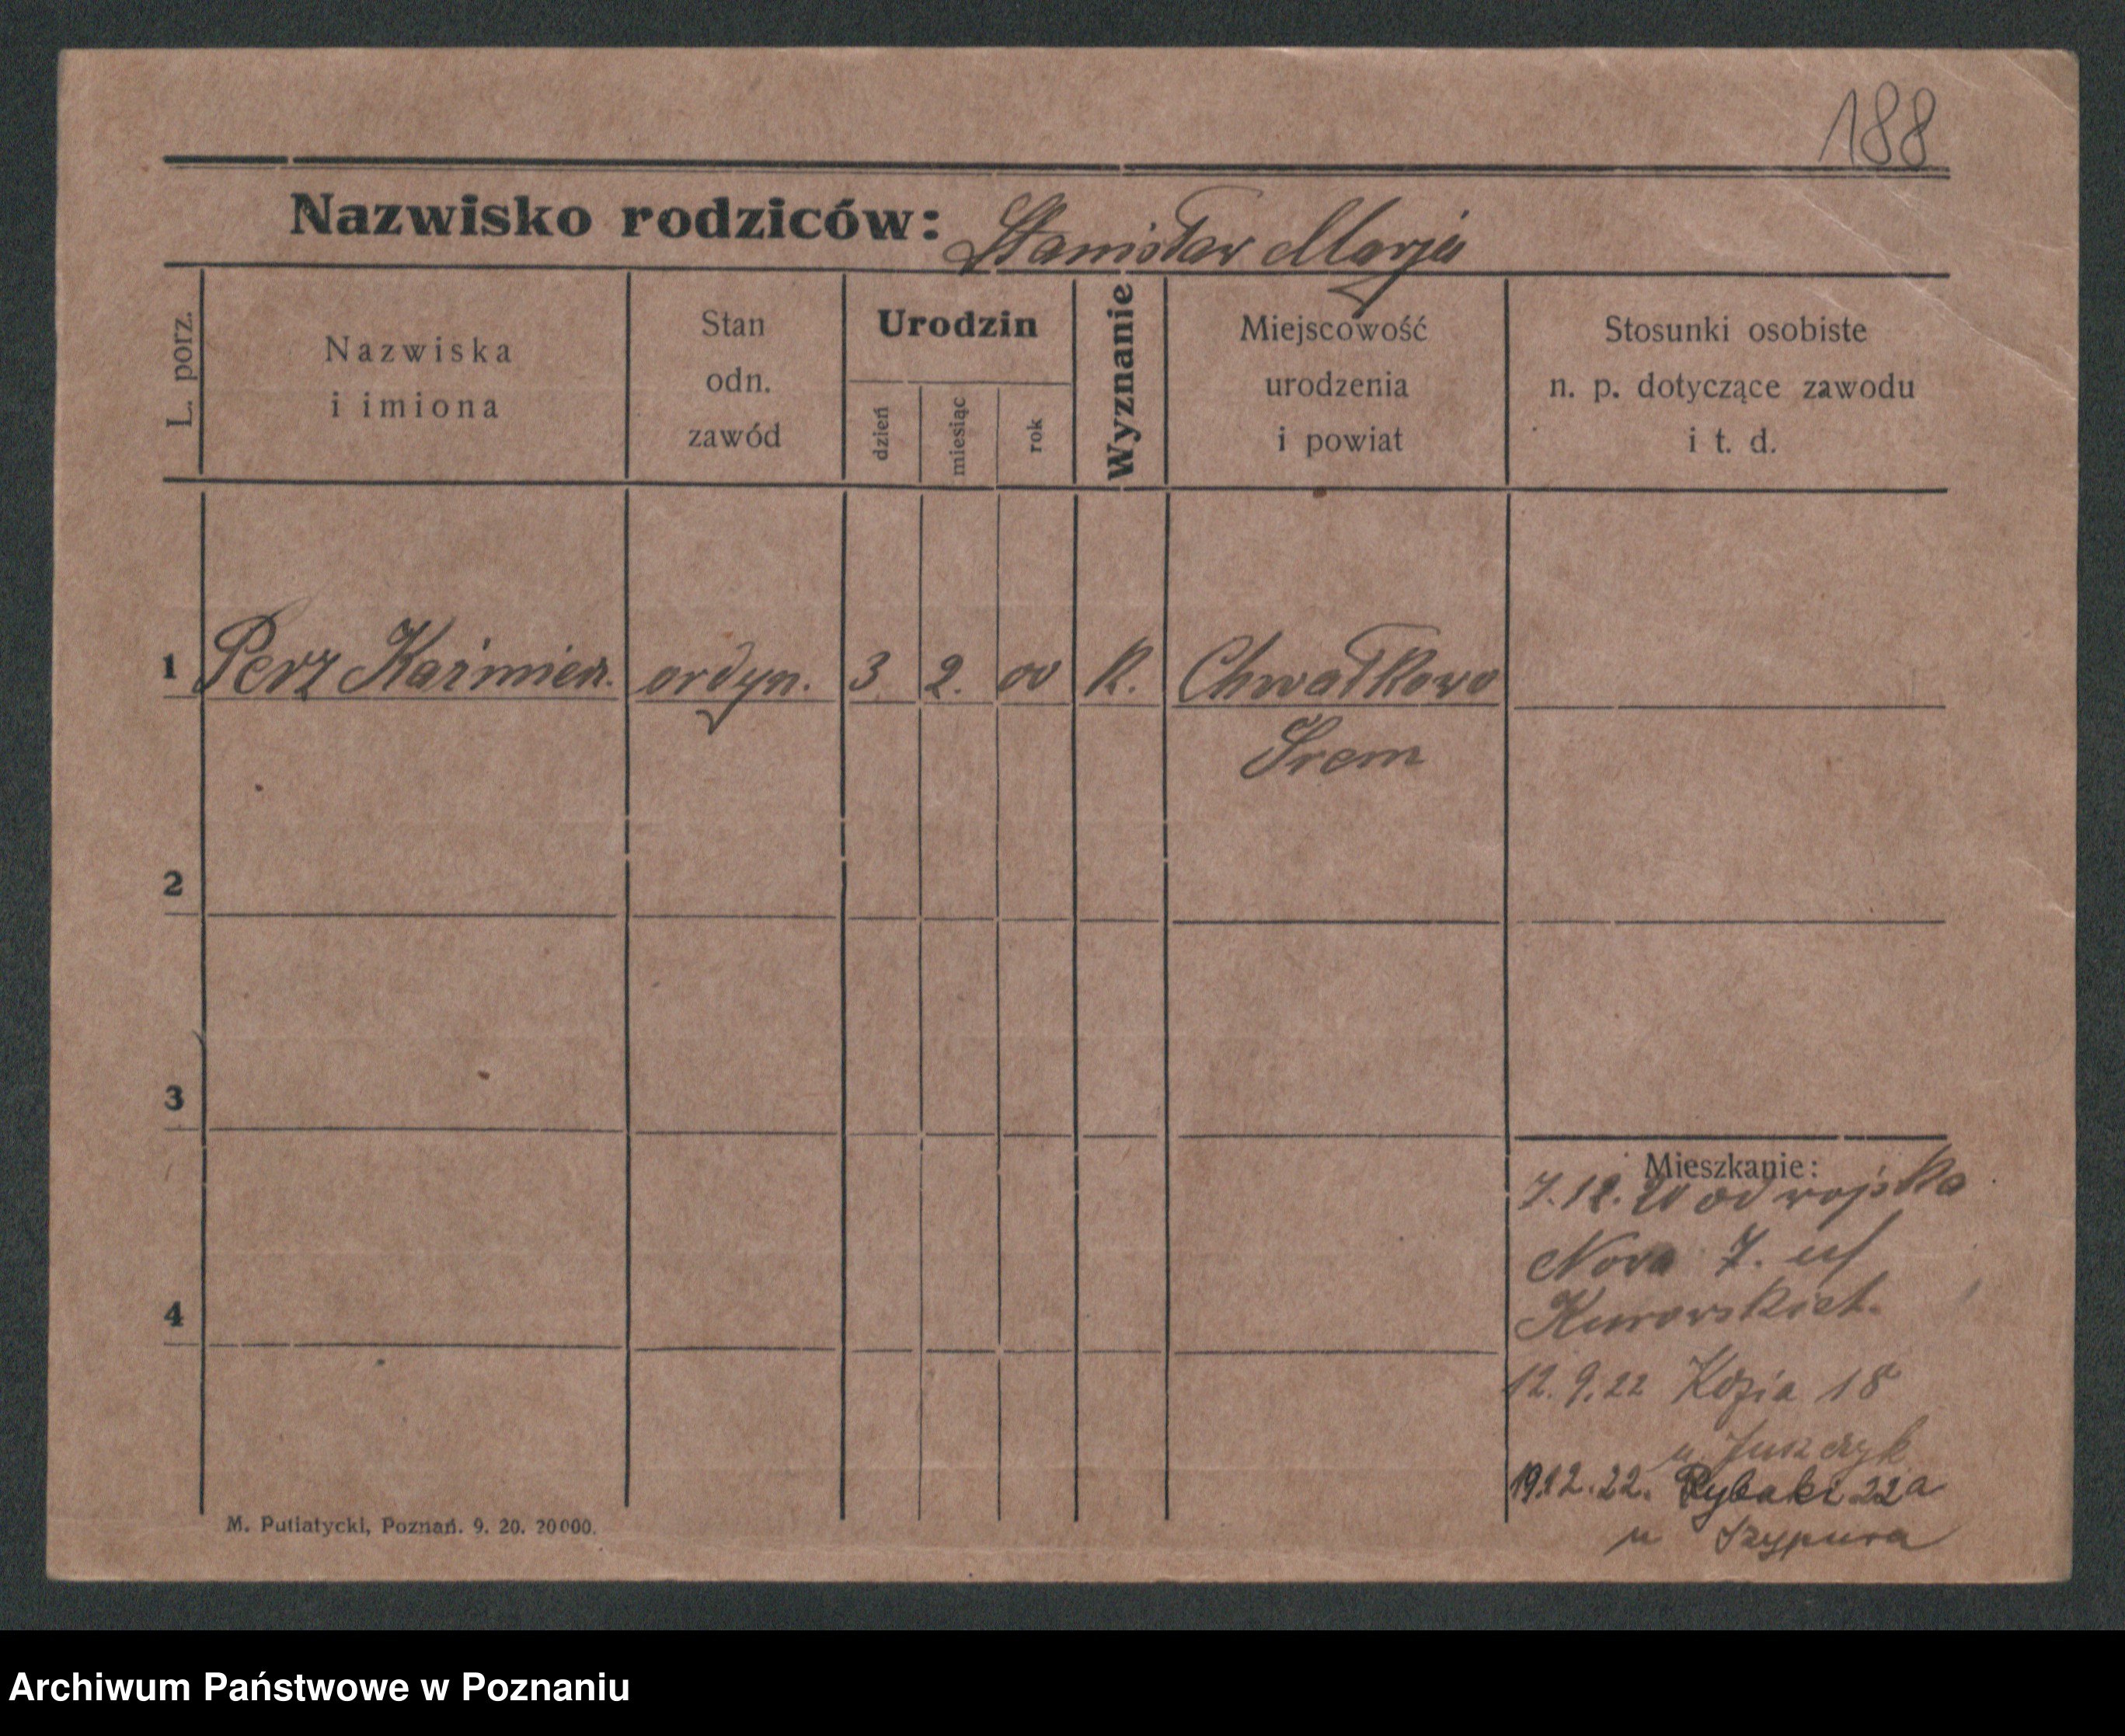 188
Nazwisko rodziców: Stanisław Marja
L. porz.
Nazwiska
i imiona
Stan
odn.
zawód
Urodzin
dzień
miesiąc
rok
Wyznanie
Miejscowość
urodzenia
i powiat
Stosunki osobiste
n. p. dotyczące zawodu
i t. d.
1 Perz Kaźmierz. ordyn. 3 2. 00 k. Chwałkowo
Śrem
2
3
4
Mieszkanie:
7.12.20 od wojska
Nowa 7.
Kurowskich.
12.9.22 Kozia 18
u Juszczyk
19.12.22. Rybaki 22a
u Szypura
M. Putiatycki, Poznań. 9. 20. 20000.
Archiwum Państwowe w Poznaniu